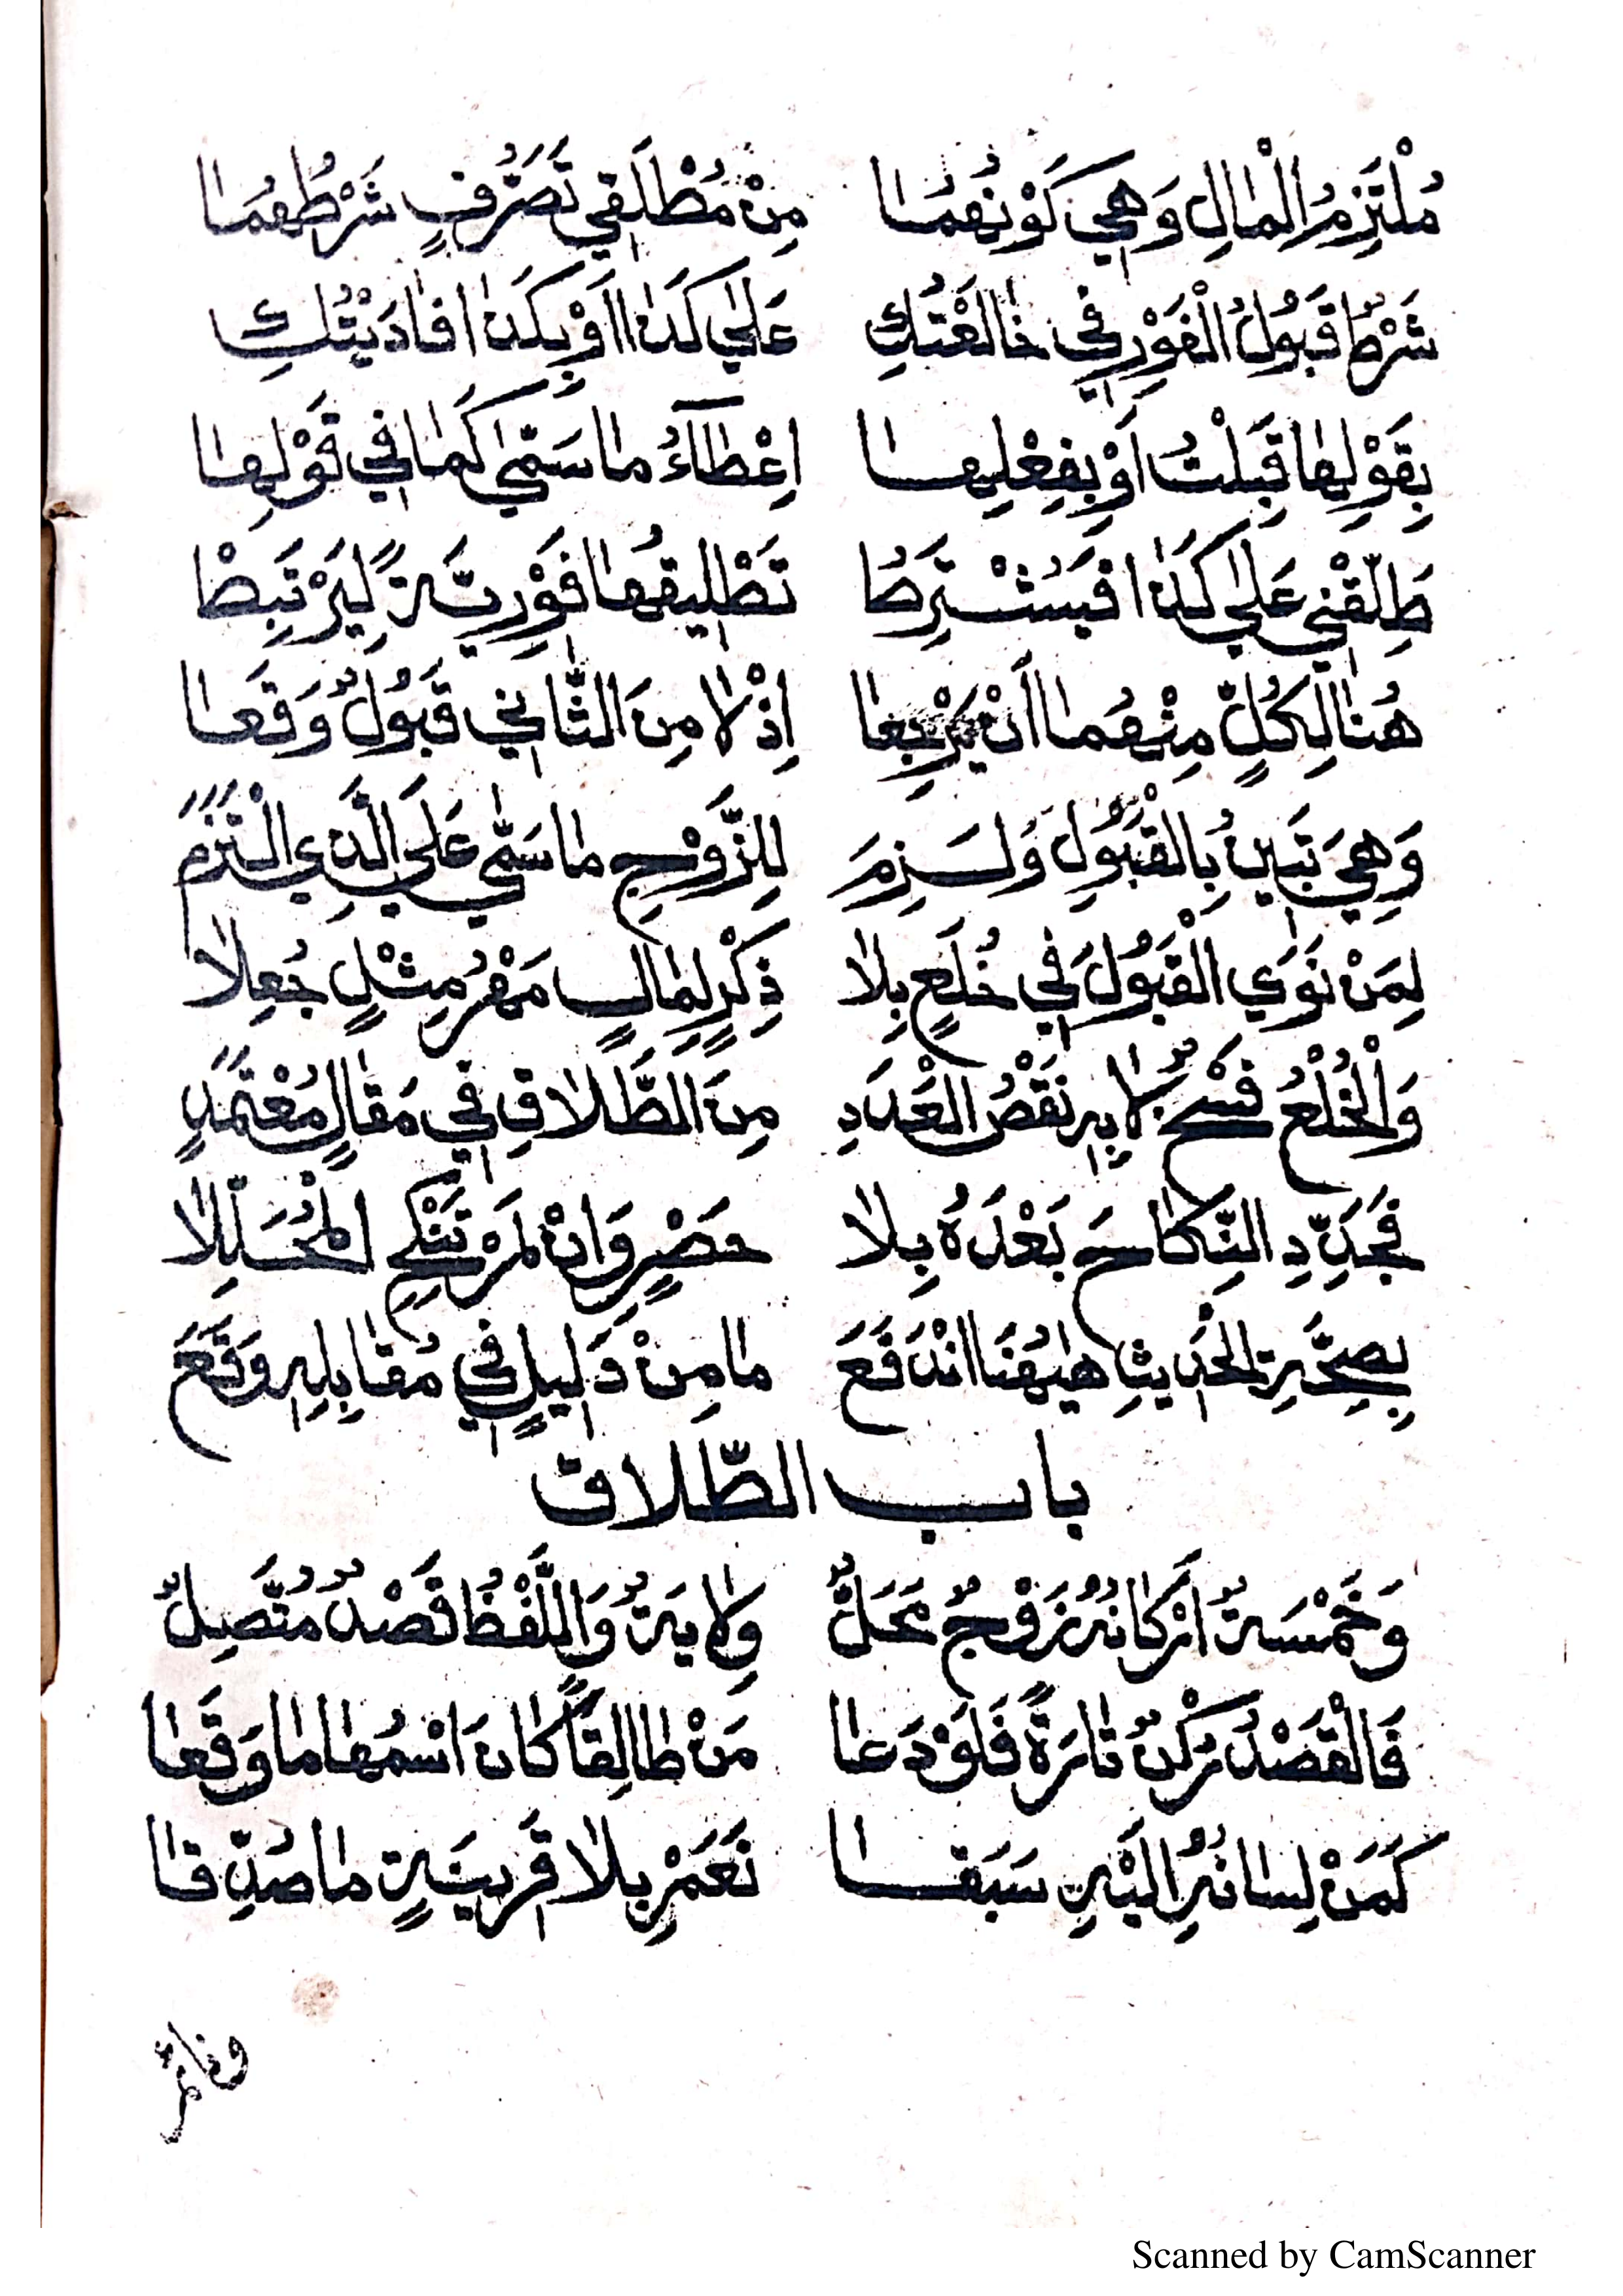 مُلْتَزِمُ الْمَالِ وَهِيَ كَوْنُهُمَا مِنْ مُطْلَقِي تَصَرُّفٍ شَرْطُهُمَا
شَرْطٌ قَبُولُ الْفَوْرِ فِي خَالَعْتُكِ عَلٰى كَذَا اَوْ بِكَذَا فَادَيْتُكِ
بِقَوْلِهَا قَبِلْتُ اَوْ بِفِعْلِهَا اِعْطَآءُ مَا سَمّٰى كَمَا فِي قَوْلِهَا
طَلِّقْنِي عَلٰى كَذَا فَيُشْتَرَطُ تَطْلِيقُهَا فَوْرِيَّةً لِيَرْتَبِطْ
هُنَا لِكُلٍّ مِنْهُمَا أَنْ يَرْجِعَا اِذْ لَا مِنَ الثَّانِي قَبُولٌ وَقَعَا
وَهِيَ تَبِينُ بِالْقَبُولِ وَلَزِمَ لِلزَّوْجِ مَا سَمّٰى عَلَى الَّذِي الْتَزَمَ
لِمَنْ نَوَى الْقَبُولَ فِي خُلْعٍ بِلَا ذِكْرٍ لِمَالٍ مَهْرُ مِثْلٍ جُعِلَا
وَالْخُلْعُ فَسْخٌ لَا بِهِ نَقْصُ الْعَدَدِ مِنَ الطَّلَاقِ فِي مَقَالٍ مُعْتَمَدٍ
فَجَدِّدِ النِّكَاحَ بَعْدَهُ بِلَا حَصْرٍ وَاِنْ لَمْ تَنْكِحِ الْمُحَلِّلَا
بِصِحَّةِ الْحَدِيثِ هٰيهُنَا انْدَفَعَ مَا مِنْ دَلِيلٍ فِي مُقَابِلِهِ وَقَعَ
باب الطّلاق
وَخَمْسَةٌ اَرْكَانُهُ زَوْجٌ مَحَلٌّ وِلَايَةٌ وَاللَّفْظُ قَصْدٌ مُتَّصِلٌ
فَالْقَصْدُ رُكْنٌ تَارَةً فَلَوْ دَعَا مَنْ طَالِقًا كَانَ اسْمُهَا مَا وَقَعَا
كَمَنْ لِسَانُهُ اِلَيْهِ سَبَقَا نَعَمْ بِلَا قَرِينَةٍ مَا صُدِّقَا
Scanned by CamScanner